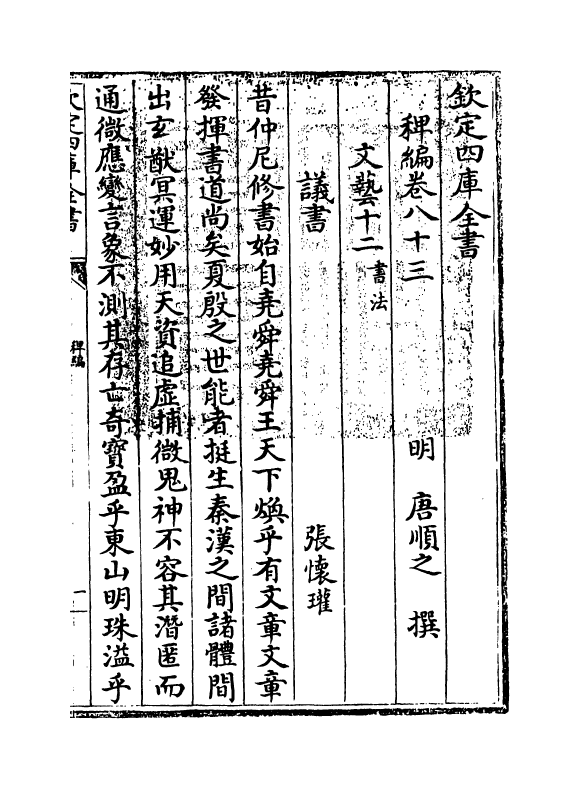 欽定四庫全書
稗編卷八十三
明 唐順之 撰
文藝十二書法
議書 張懷瓘
昔仲尼修書始自堯舜堯舜王天下煥乎有文章文章
發揮書道尚矣夏殷之世能者挺生秦漢之間諸體間
出玄猷冥運妙用天資追虛捕微鬼神不容其潛匿而
通微應變言象不測其存亡奇寶盈乎東山明珠溢乎
欽定四庫全書
稗編
一